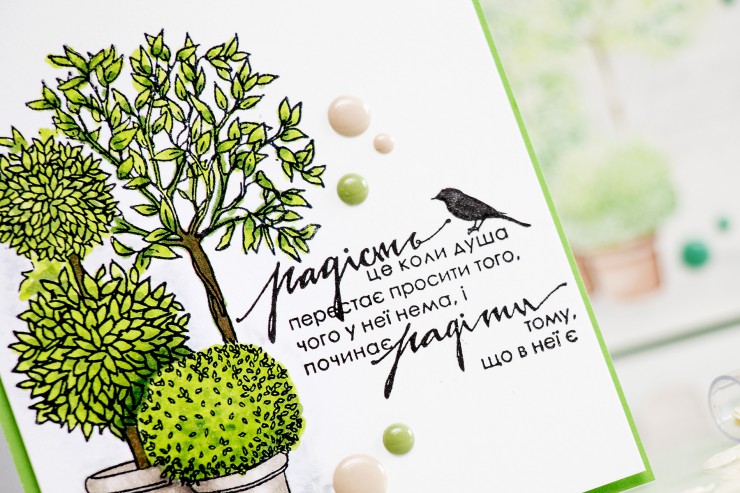 радість
це коли душа
перестає просити того,
чого у неї нема, і
починає радіти тому,
що в неї є